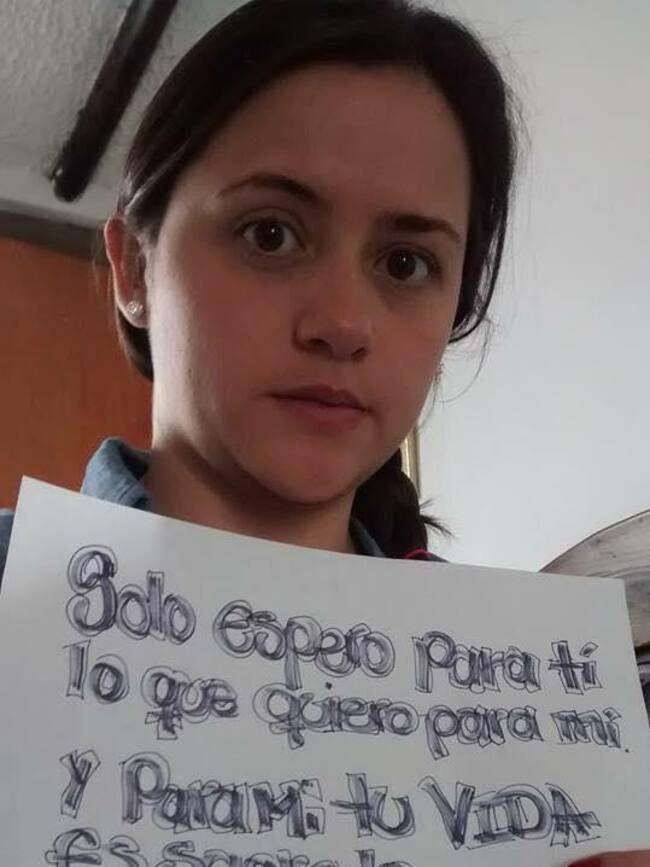 Solo espero para ti
lo que quiero para mi.
Y Para Mi tu VIDA
es sagrada